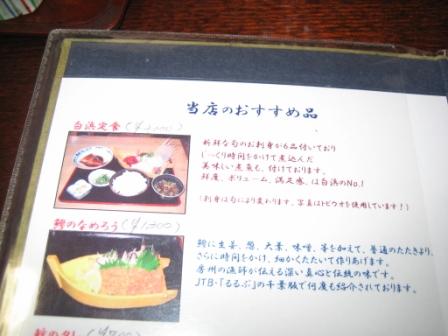 当店のおすすめ品
白浜定食 (¥2,000)
新鮮な旬のお刺身が6品付いており
じっくり時間をかけて煮込んだ
美味しい煮魚も、付けております。
鮮度、ボリューム、満足感、は白浜のNo.1
(刺身は旬により変わります、写真はトビウオを使用しています!)
鯵のなめろう (¥1,200)
鯵に生姜、葱、大葉、味噌、等を加えて、普通のたたきより、
さらに時間をかけ、細かくたたいて作りあげます。
房州の漁師が伝える深い真心と伝統の味です。
JTB・「るるぶ」の千葉版で何度も紹介されております。